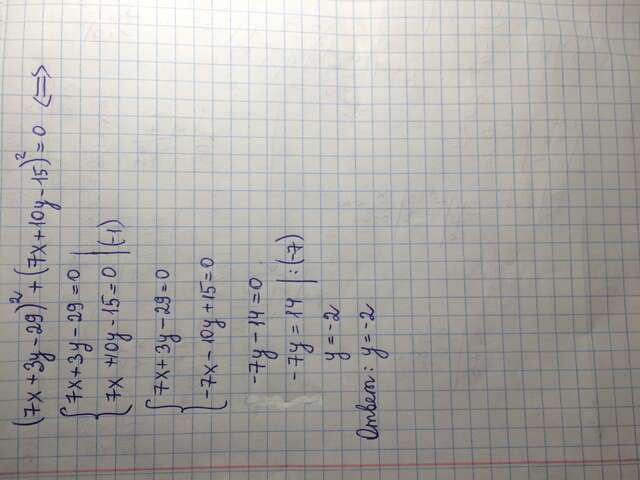 (7x+3y-29)²+(7x+10y-15)²=0 <=>
{7x+3y-29=0
{7x+10y-15=0 |(-1)
{7x+3y-29=0
{-7x-10y+15=0
-7y-14=0
-7y=14 |:(-7)
y=-2
Ответ: y=-2